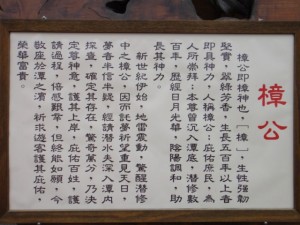 樟公
樟公即樟神也,「樟」,生性強韌
堅實,翠綠芳香,生長五百年以上者
即具神力,人稱樟公;庇佑庶民,為
人所崇拜;本尊曾沉入潭底,潛修數
百年,歷經日月光華,陰陽調和,助
長其神力。
新世紀伊始,地雷震動,驚醒潛修
中之樟公,因而託夢祈望重見天日,
夢者半信半疑,經請潛水夫深入潭內
探查,確定其存在,驚奇萬分,乃決
定尊神意,護其上岸,庇佑百姓,護
請過程,倍感艱辛,但終能如願,今
敬座於潭之濱,祈求遊客護其庇佑,
榮華富貴。